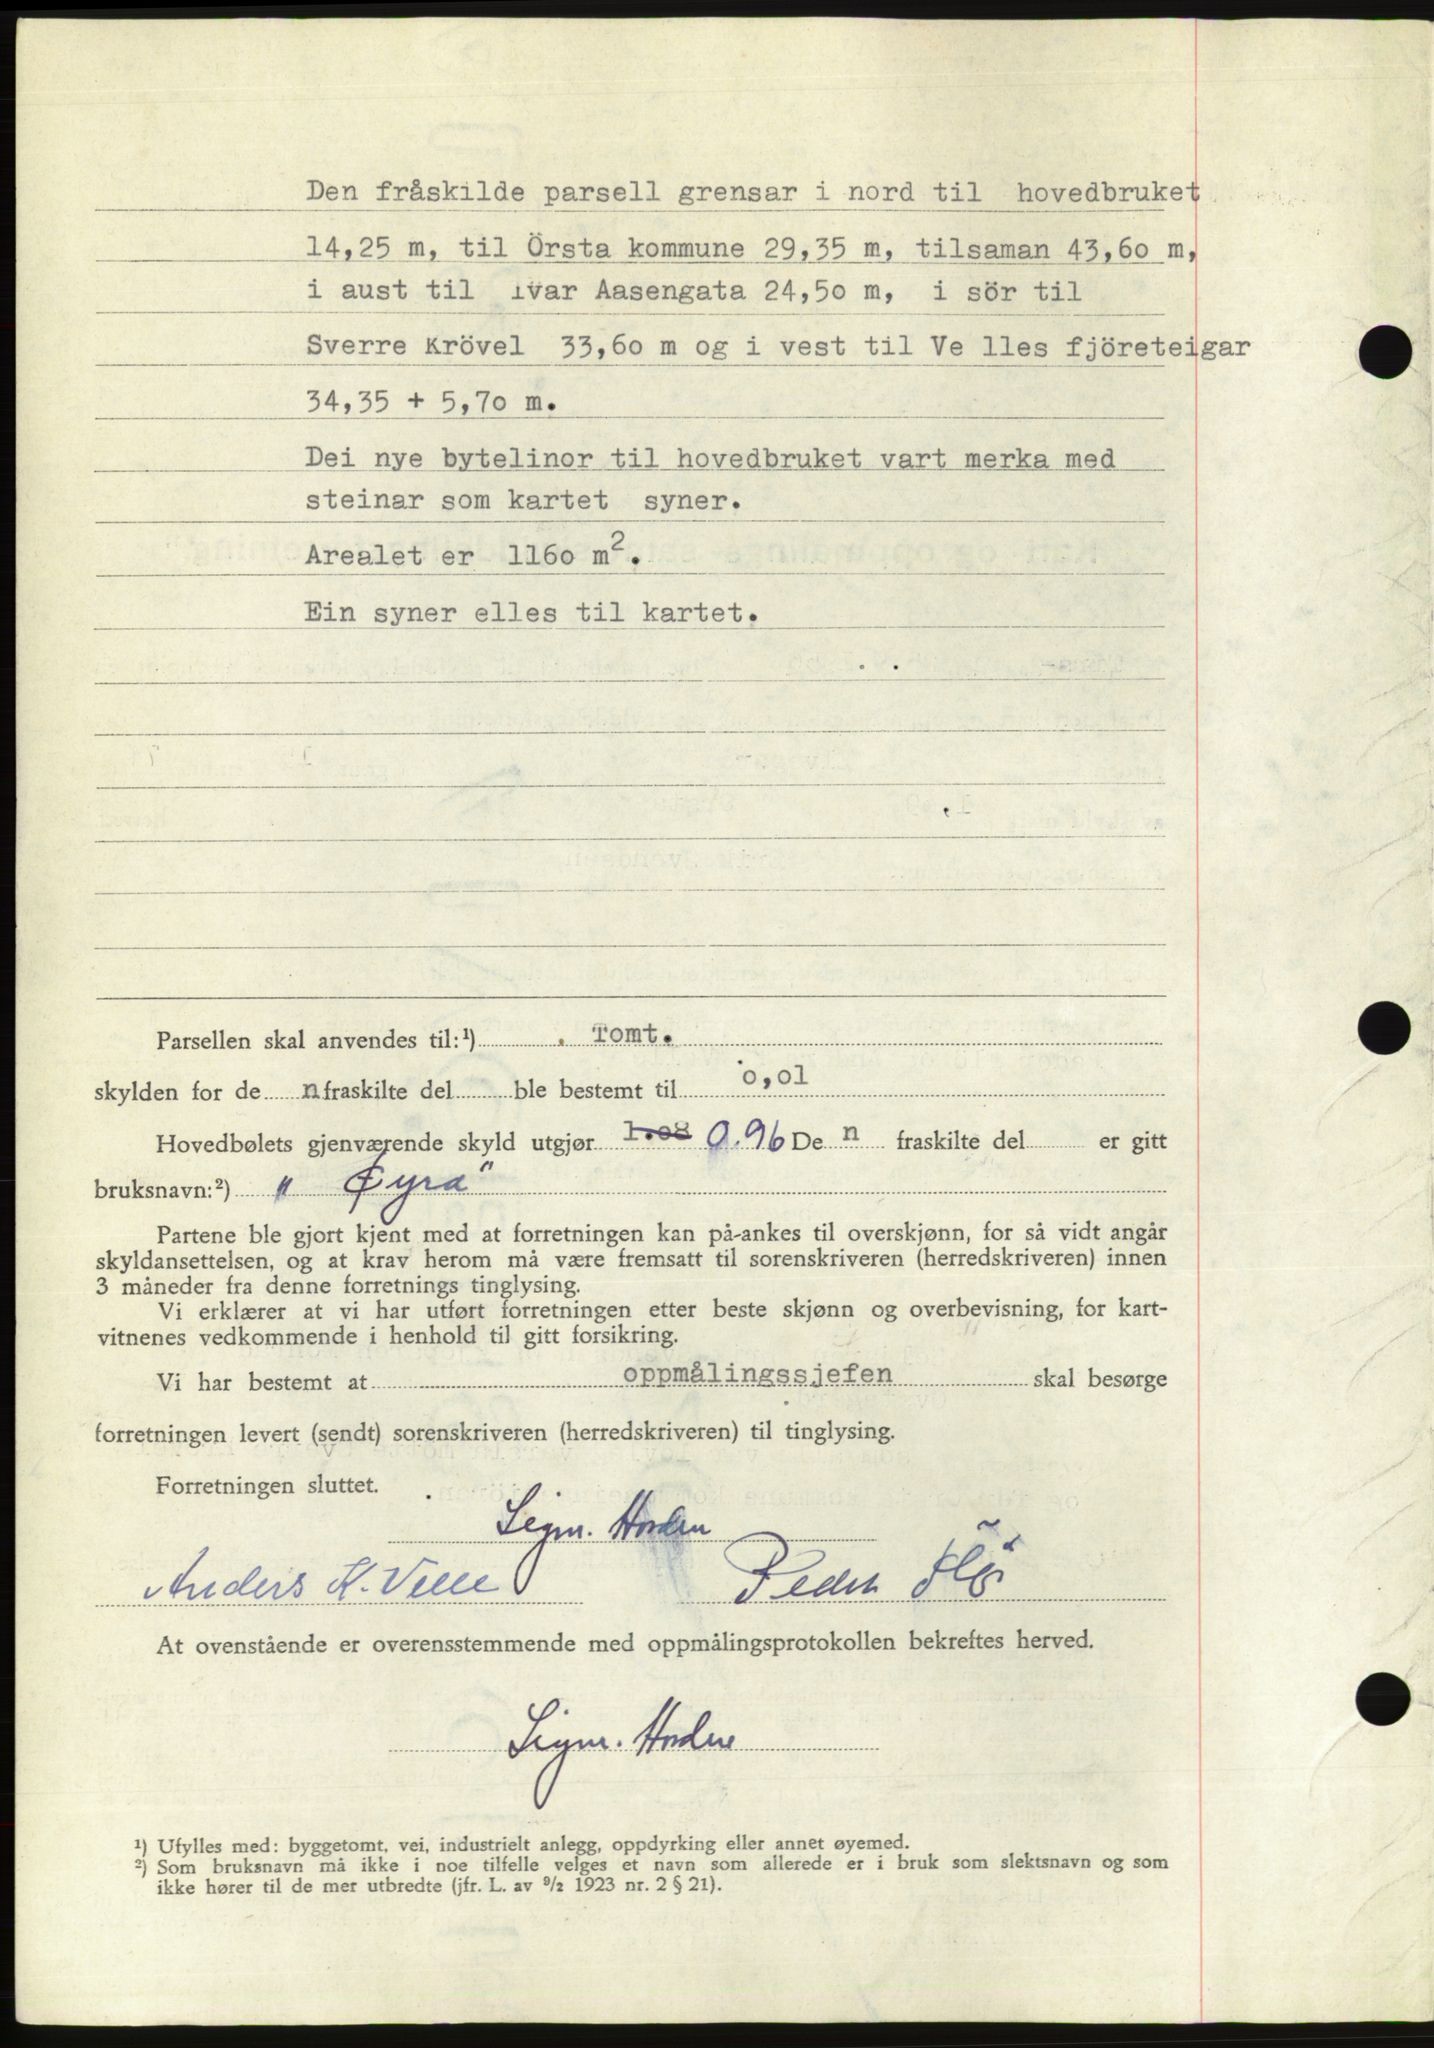 Den fråskilde parsell grensar i nord til hovedbruket
14,25 m, til Örsta kommune 29,35 m, tilsaman 43,60 m,
i aust til Ivar Aasengata 24,50 m, i sör til
Sverre Krövel 33,60 m og i vest til Ve lles fjöreteigar
34,35 + 5,70 m.
Dei nye bytelinor til hovedbruket vart merka med
steinar som kartet syner.
Arealet er 1160 m².
Ein syner elles til kartet.
Parsellen skal anvendes til:¹) Tomt.
skylden for de n fraskilte del ble bestemt til 0,01
Hovedbølets gjenværende skyld utgjør 1.08 0.96 De n fraskilte del er gitt
bruksnavn:²) " Øyra"
Partene ble gjort kjent med at forretningen kan på-ankes til overskjønn, for så vidt angår
skyldansettelsen, og at krav herom må være fremsatt til sorenskriveren (herredskriveren) innen
3 måneder fra denne forretnings tinglysing.
Vi erklærer at vi har utført forretningen etter beste skjønn og overbevisning, for kart-
vitnenes vedkommende i henhold til gitt forsikring.
Vi har bestemt at oppmålingssjefen skal besørge
forretningen levert (sendt) sorenskriveren (herredskriveren) til tinglysing.
Forretningen sluttet.
Sigm. Hovden
Anders K. Velle Peder Flø
At ovenstående er overensstemmende med oppmålingsprotokollen bekreftes herved.
Sigm. Hovden
¹) Ufylles med: byggetomt, vei, industrielt anlegg, oppdyrking eller annet øyemed.
²) Som bruksnavn må ikke i noe tilfelle velges et navn som allerede er i bruk som slektsnavn og som
ikke hører til de mer utbredte (jfr. L. av ⁹/₂ 1923 nr. 2 § 21).